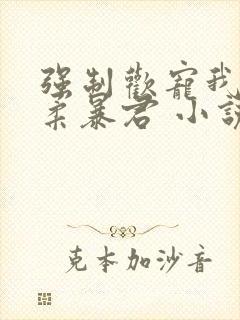 强制歡寵我
柔暴君 小說
克本加沙音